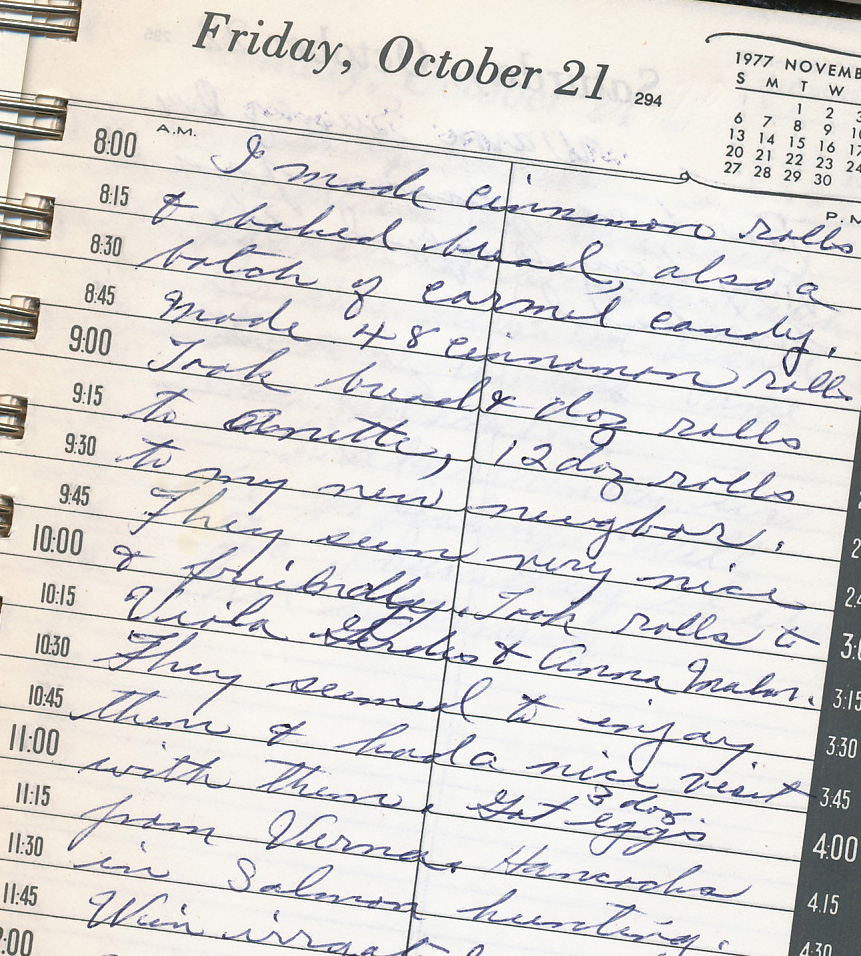 Friday, October 21 294
1977 NOVEMB
S M T W
1 2 3
6 7 8 9
13 14 15 16 17
20 21 22 23 24
27 28 29 30
A.M.
P.M
8:00
8:15
8:30
8:45
9:00
9:15
9:30
9:45
10:00
10:15
10:30
10:45
11:00
11:15
11:30
11:45
I made cinnamon rolls
& baked bread, also a
batch of carmel candy.
Made 48 cinnamon rolls
Took bread & doz rolls
to Anette, 12 doz rolls
to my new neighbor.
They seem very nice
& friendly. Took rolls to
Viola & Anna
They seemed to enjoy
them & had a nice visit
with them. Got 3 doz. eggs
from Verna. Hancocks
in Salmon hunting.
Win
3:15
3:30
3:45
4:00
4:15
4:30